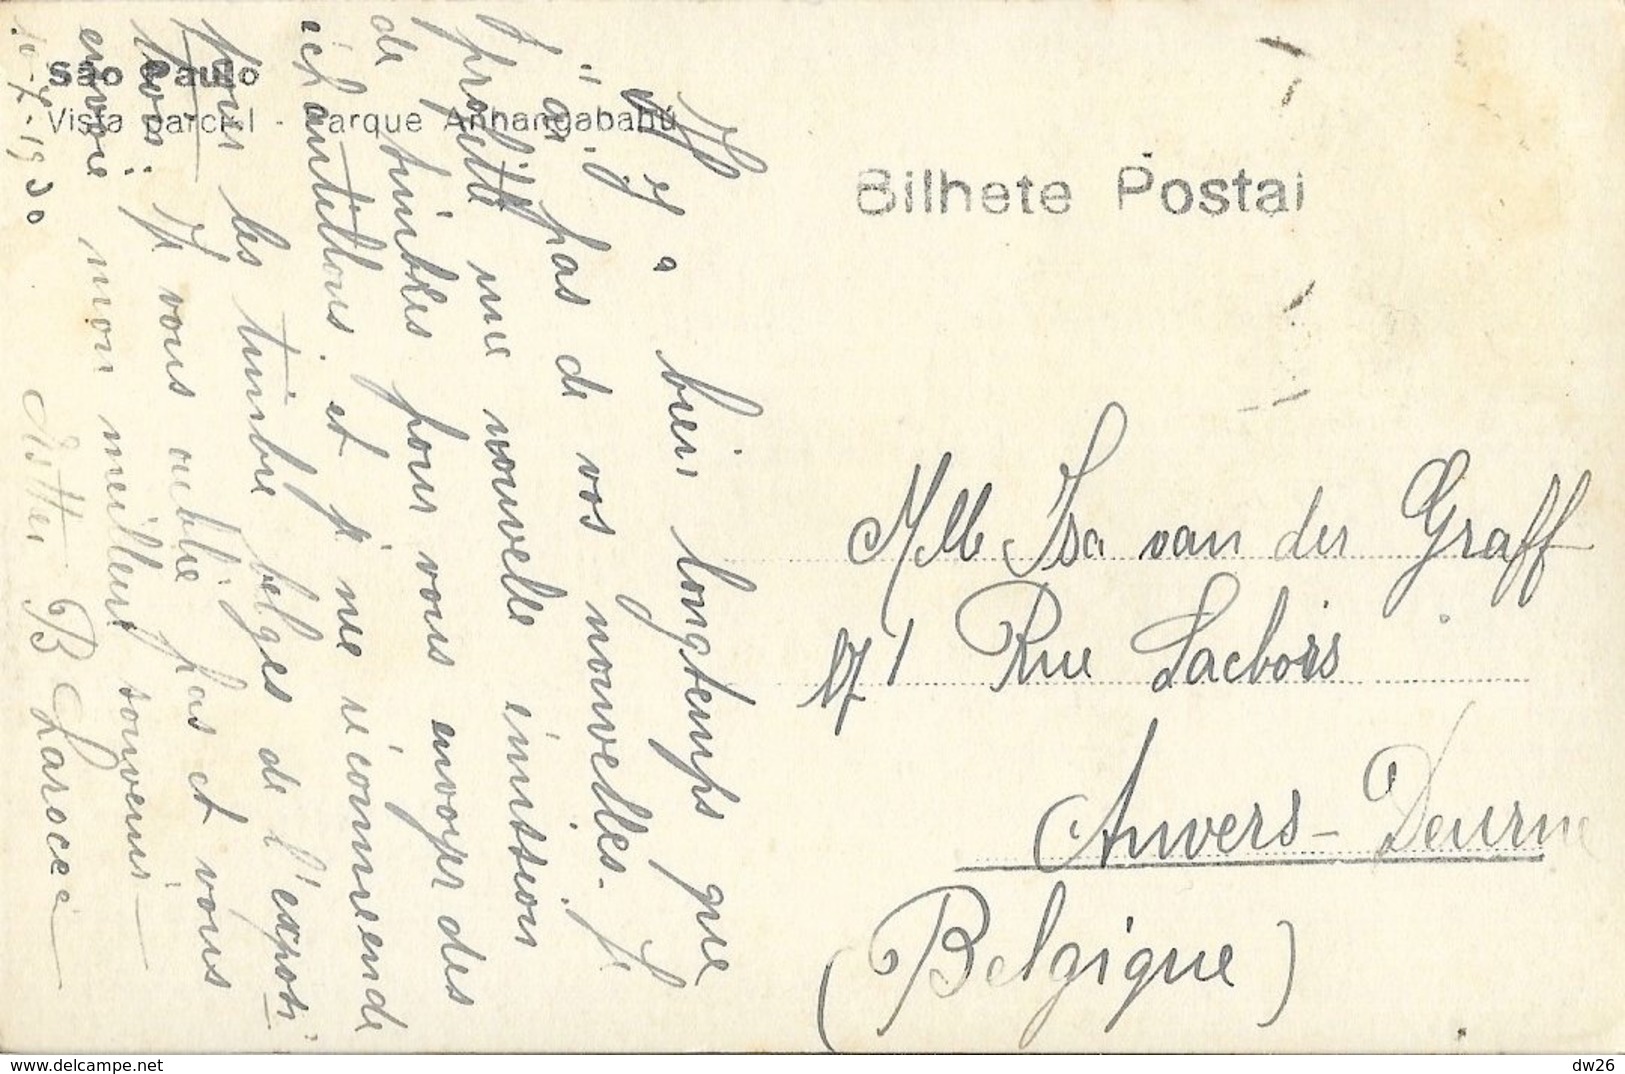 São Paulo
Vista parciel - Parque Anhangabahú
Bilhete Postal
Il y a bien longtemps que
j'ai pas de vos nouvelles. Je
profitte une nouvelle émission
de timbres pour vous envoyer des
échantillons et je me récommende
pour les timbre belges de l'exposi
tion. Je vous oublie pas et vous
envoie mon meilleur souvenir
10-7-1930
B Larocca
Mlle Isa van der Graff
171 Rue Lacbors
Anvers - Deurne
(Belgique)
dw26